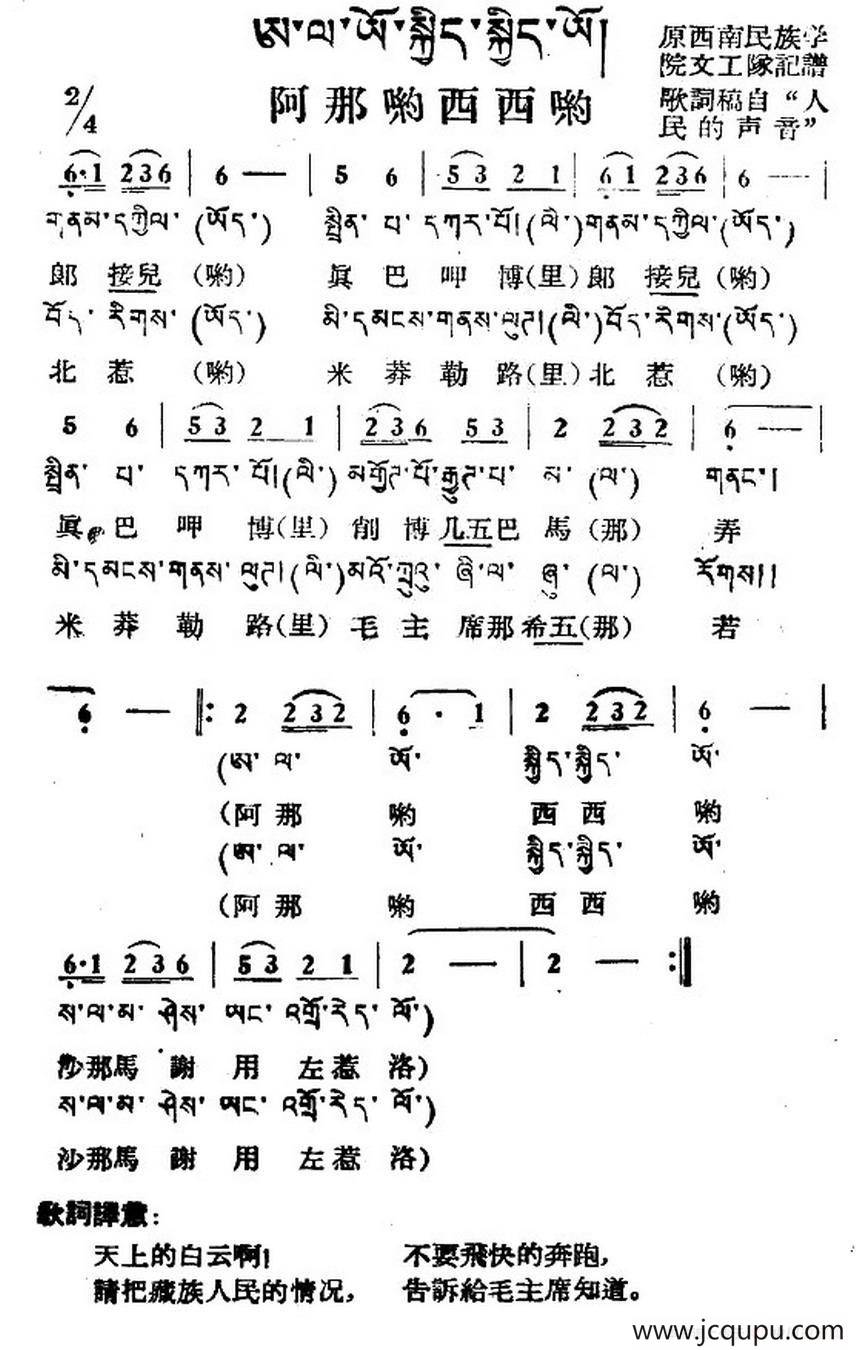 ཨ་ལ་ཡོ་སྐྱིད་སྐྱིད་ཡོ།
阿那喲西西喲
原西南民族学
院文工隊記譜
歌詞稿自“人
民的声音”
2/4
6·1 236 | 6 — | 5 6 | 53 2 1 | 61 236 | 6 — |
གནམ་དཀྱིལ་(ཡོད་) སྤྲིན་པ་དཀར་པོ།(ལི་)གནམ་དཀྱིལ་(ཡོད་)
郎接兒(喲) 眞巴呷博(里)郎接兒(喲)
བོད་རིགས་(ཡོད་) མི་དམངས་གནས་ལུཊ།(ལི་)བོད་རིགས་(ཡོད་)
北惹(喲) 米莽勒路(里)北惹(喲)
5 6 | 53 2 1 | 236 53 | 2 232 | 6 — |
སྤྲིན་པ་དཀར་པོ།(ལི་)མགྱོཊ་པོ་རྒྱུཊ་པ་མ་(ལ་)གནང་།
眞巴呷博(里)削博几五巴馬(那)弄
མི་དམངས་གནས་ལུཊ།(ལི་)མའོ་ཀྲུའུ་ཞི་ལ་ཞུ་(ལ་)རོགས།།
米莽勒路(里)毛主席那希五(那)若
6 — |: 2 232 | 6 · 1 | 2 232 | 6 — |
(ཨ་ལ་ཡོ་ སྐྱིད་སྐྱིད་ཡོ་
(阿那喲 西西喲
(ཨ་ལ་ཡོ་ སྐྱིད་སྐྱིད་ཡོ་
(阿那喲 西西喲
6·1 236 | 53 2 1 | 2 — | 2 — :|
ས་ལ་མ་ཤེས་ཡང་འགྲོ་རེད་ལོ་)
沙那馬謝用左惹洛)
ས་ལ་མ་ཤེས་ཡང་འགྲོ་རེད་ལོ་)
沙那馬謝用左惹洛)
歌詞譯意:
天上的白云啊! 不要飛快的奔跑,
請把藏族人民的情况, 告訴給毛主席知道。
www.jcqupu.com